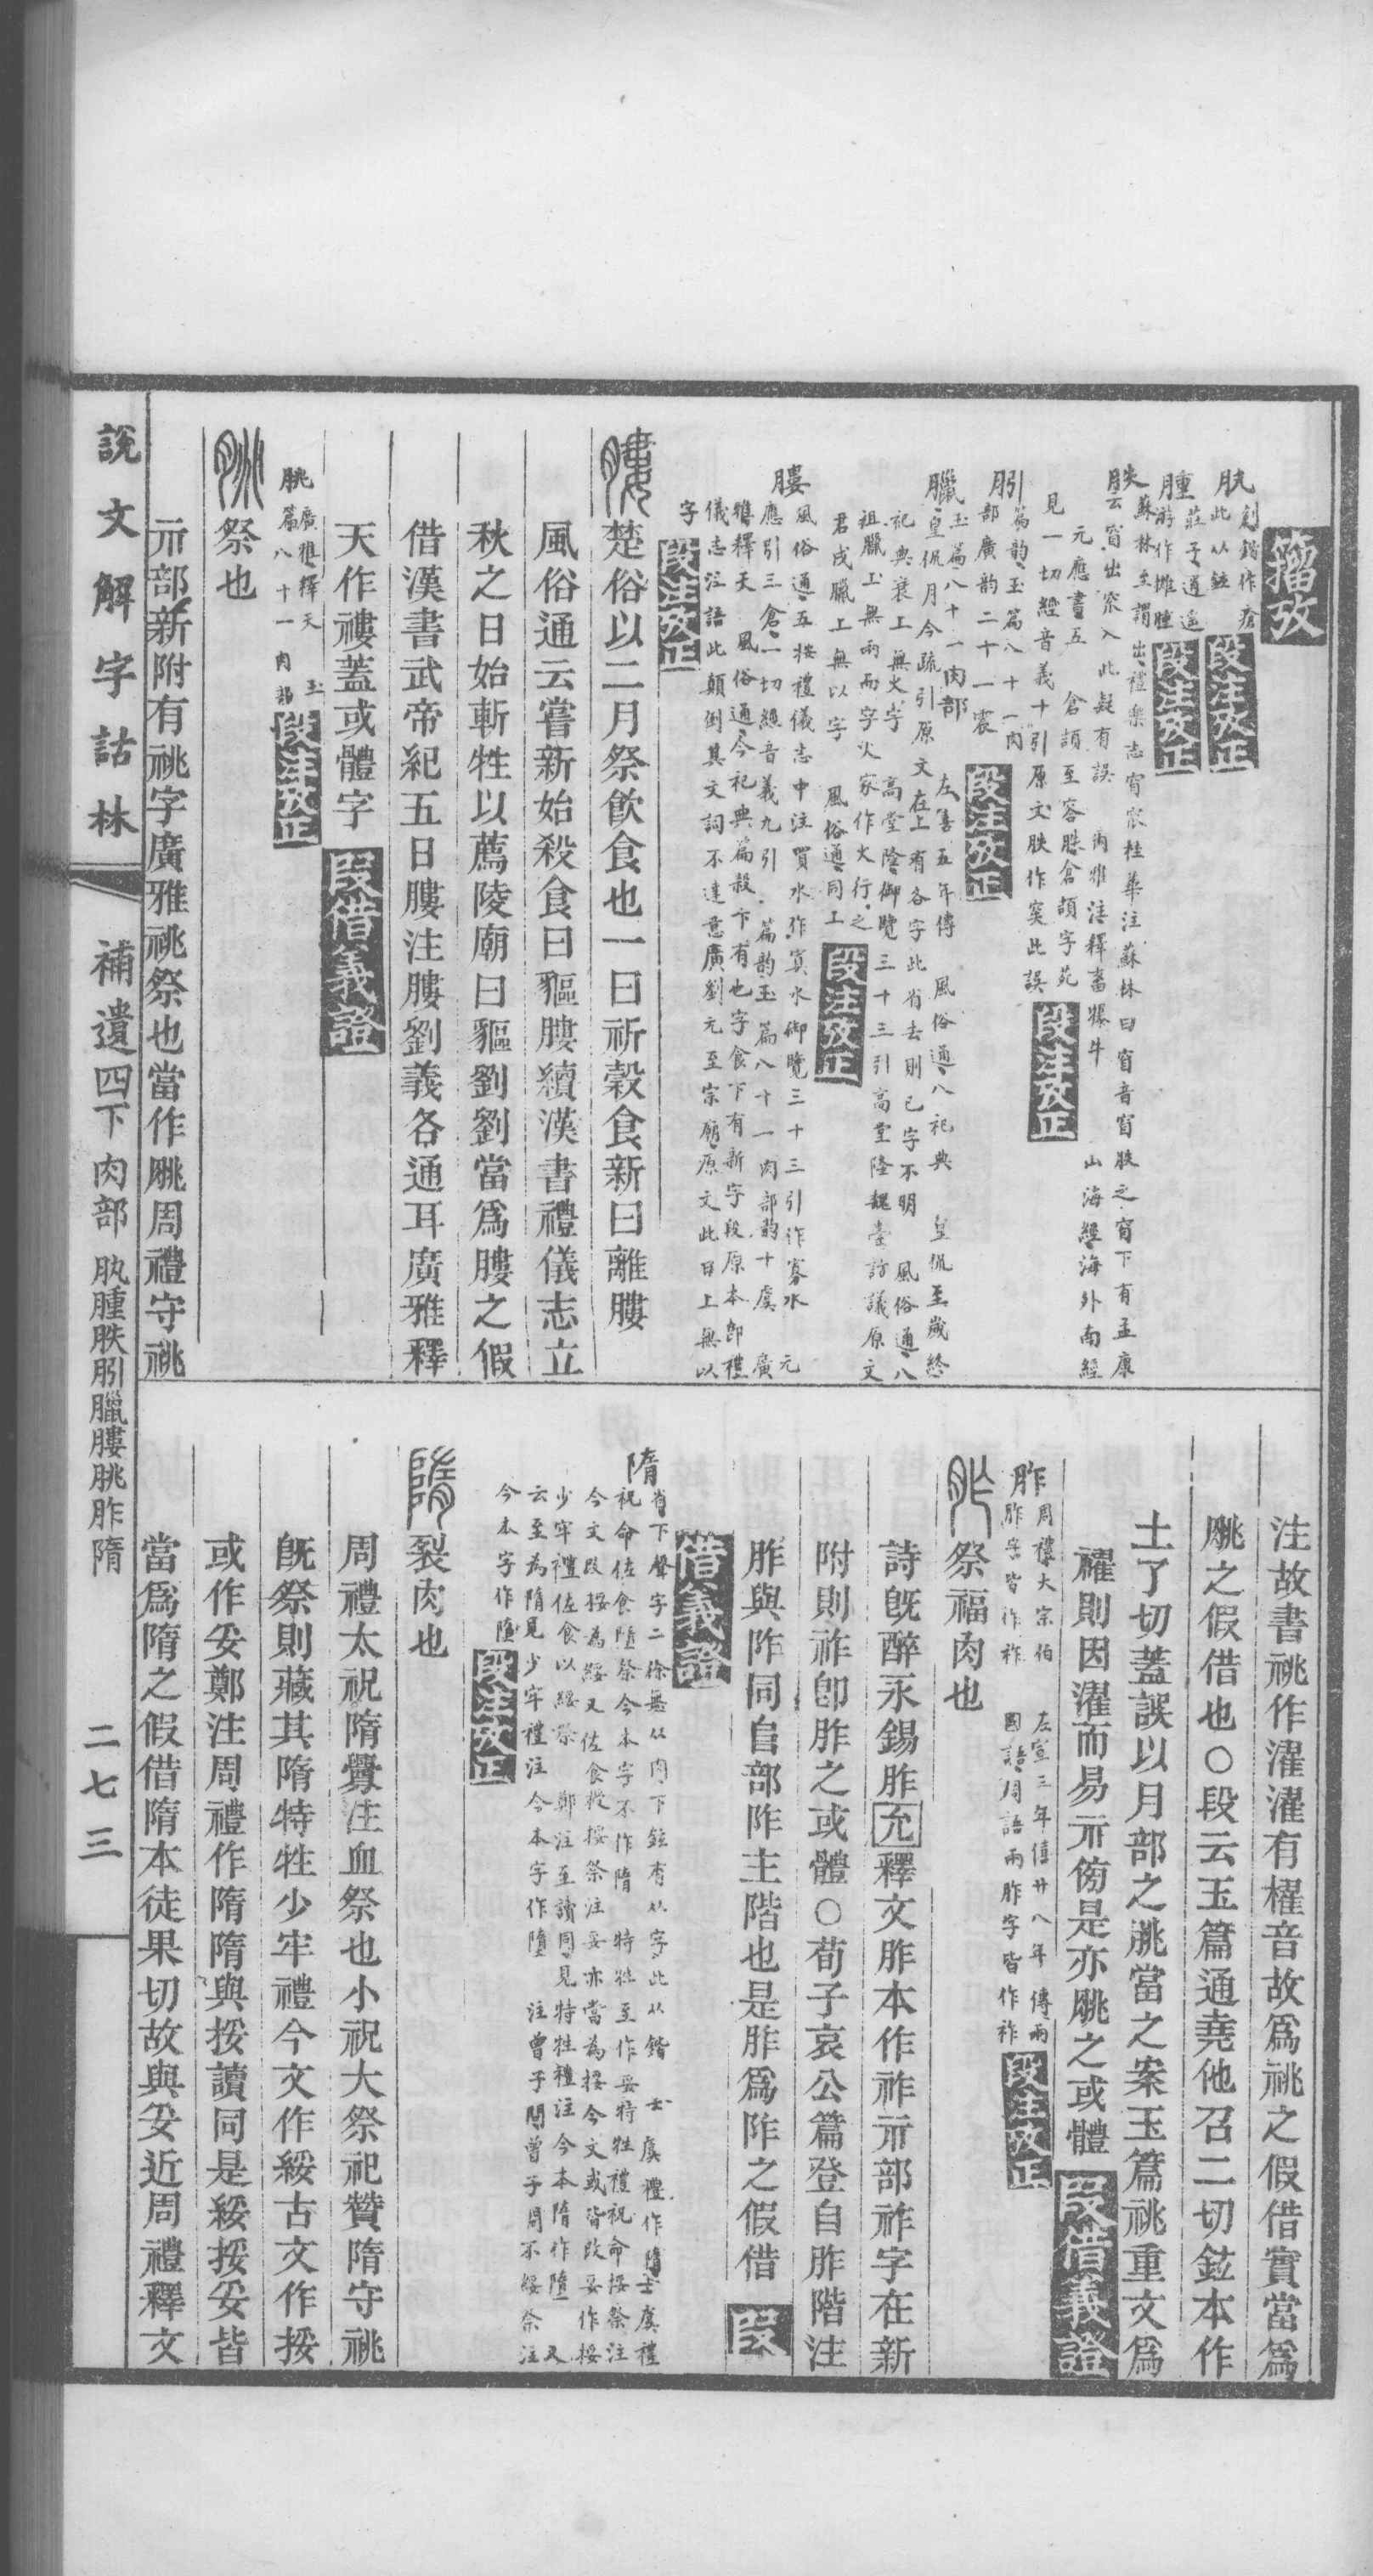 籀攷
肒創鍇作瘡
此以鉉
段注攷正
腫莊子逍遙
游作擁腫
段注攷正
胅蘇林至謂出禮樂志窅窊桂華注蘇林曰窅音窅胅之窅下有孟康
云窅出窊入此疑有誤 爾雅注釋畜犦牛 山海經海外南經
元應書五 倉頡至容胅倉頡字苑
見一切經音義十引原文胅作容此誤
段注攷正
朋篇韵玉篇八十一肉
部廣韵二十一震
段注攷正
臘玉篇八十一肉部 左僖五年傳 風俗通八祀典 皇侃至歲終
皇侃月令疏引原文在上有各字此省去則已字不明 風俗通八
祀典衰上無火字 高堂隆御覽三十三引高堂隆魏臺訪議原文
祖臘上無而而字火家作火行之
君戌臘上無以字 風俗通同上
段注攷正
膢風俗通五按禮儀志中注買水作寘水御覽三十三引作寡水 元
應引三倉一切經音義九引 篇韵玉篇八十一肉部韵十虞 廣
雅釋天 風俗通今祀典篇殺下有也字食下有新字段原本卽禮
儀志注語此顛倒其文詞不達意廣劉元至宗廟原文此日上無以
字
段注攷正
膢 楚俗以二月祭飮食也一曰祈穀食新曰離膢
風俗通云嘗新始殺食曰貙膢續漢書禮儀志立
秋之日始斬牲以薦陵廟曰貙劉劉當爲膢之假
借漢書武帝紀五日膢注膢劉義各通耳廣雅釋
天作䄛蓋或體字
段借義證
朓廣雅釋天 玉
篇八十一肉部
段注攷正
朓 祭也
示部新附有祧字廣雅祧祭也當作朓周禮守祧
注故書祧作濯濯有櫂音故爲祧之假借實當爲
朓之假借也○段云玉篇通堯他召二切鉉本作
土了切蓋誤以月部之朓當之案玉篇祧重文爲
䄶則因濯而易示傍是亦朓之或體
段借義證
胙周禮大宗伯 左宣三年僖廿八年傳兩
胙字皆作祚 國語周語兩胙字皆作祚
段注攷正
胙 祭福肉也
詩旣醉永錫胙允釋文胙本作祚示部祚字在新
附則祚卽胙之或體○荀子哀公篇登自胙階注
胙與阼同𨸏部阼主階也是胙爲阼之假借
段借義證
隋肉下聲字二徐無以肉下鉉有从字此从鍇 士虞禮作隋士虞禮
祝命佐食隋祭今本字不作隋 特牲至作妥特牲禮祝命挼祭注
今文改挼爲綏又佐食授挼祭注妥亦當爲挼今文或皆改妥作挼
少牢禮佐食以綏祭 鄭注至讀同見特牲禮注今本隋作墮 又
云至爲隋見少牢禮注 今本字作墮 注曾子問曾子問不綏祭注
今本字作墮
段注攷正
隋 裂肉也
周禮太祝隋釁注血祭也小祝大祭祀贊隋守祧
旣祭則藏其隋特牲少牢禮今文作綏古文作挼
或作妥鄭注周禮作隋隋與挼讀同是綏挼妥皆
當爲隋之假借隋本徒果切故與妥近周禮釋文
說文解字詁林
補遺四下肉部 肒腫胅朋臘膢朓胙隋
二七三